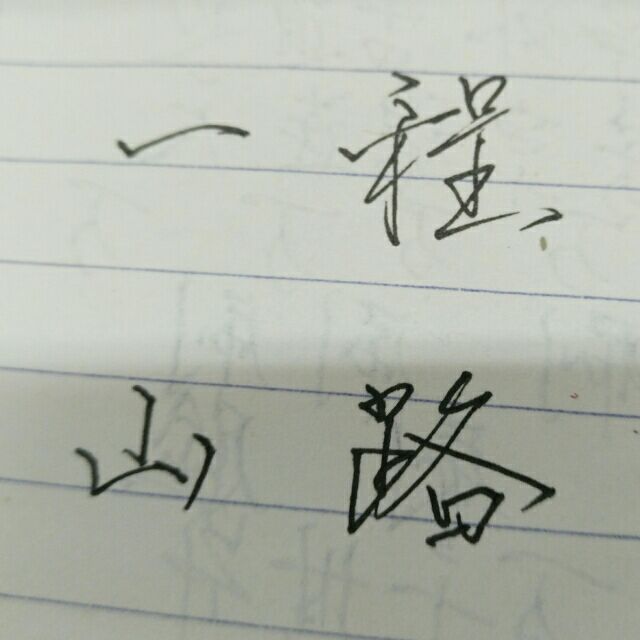 一程
山路